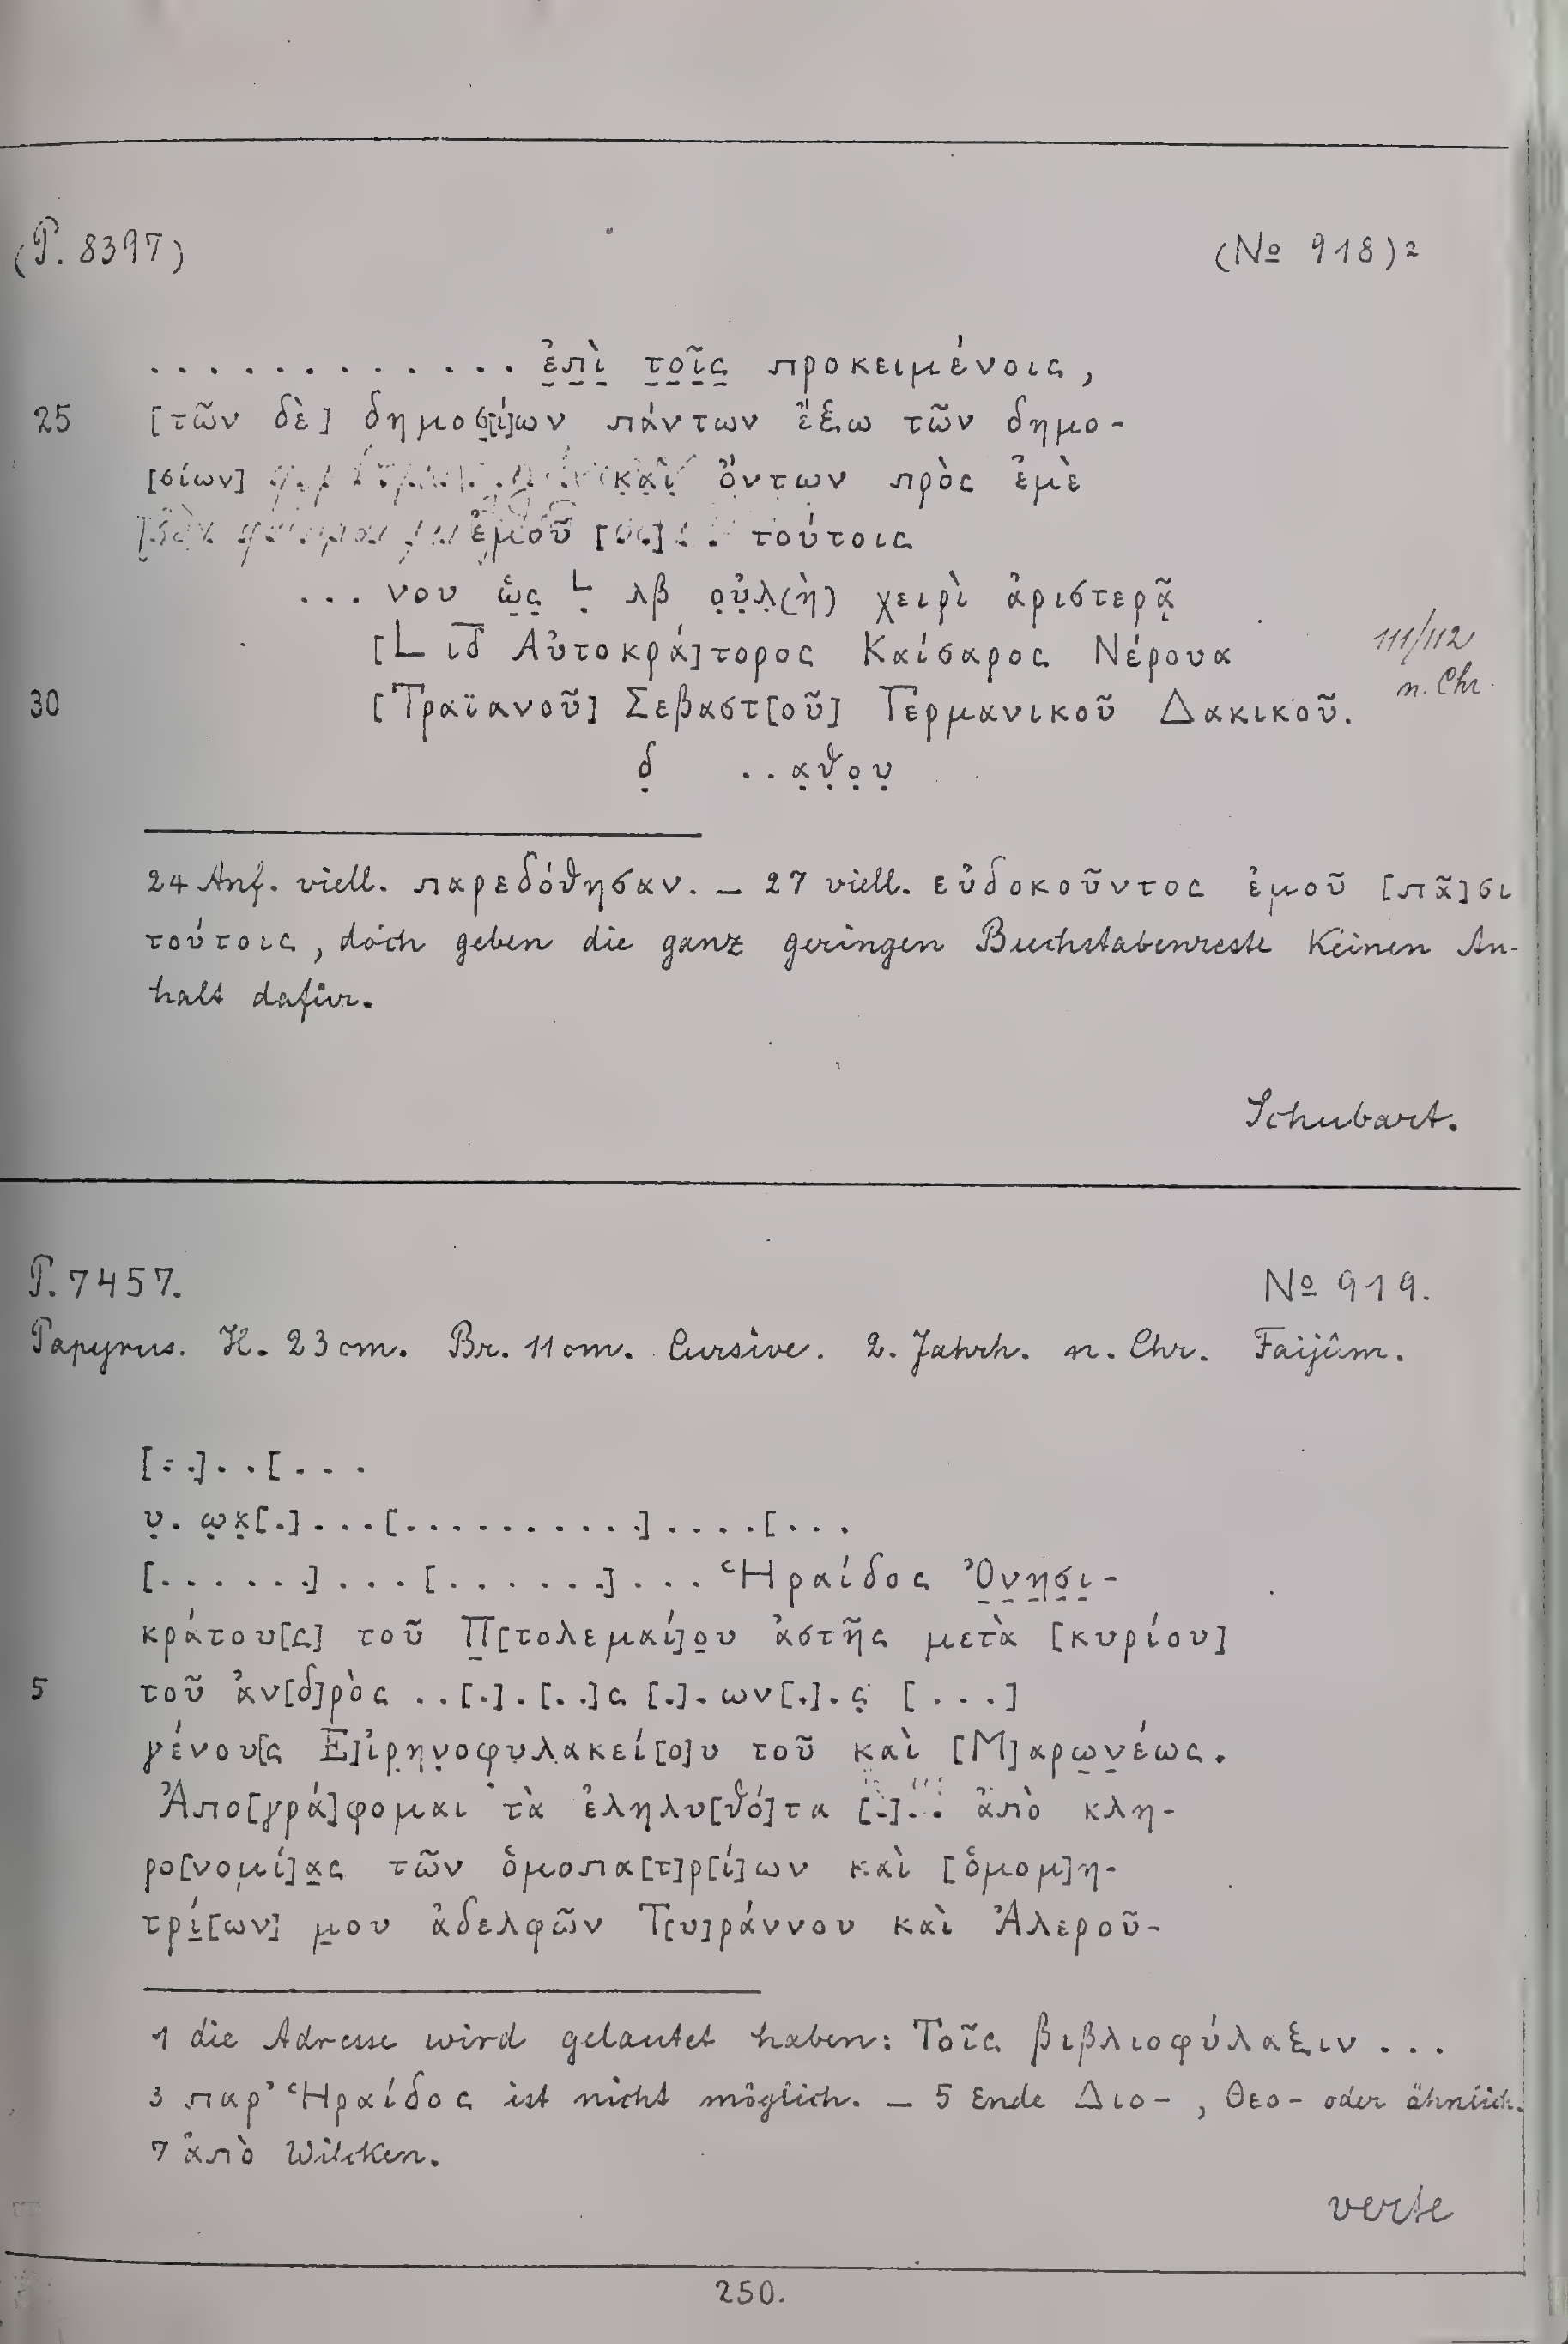 (P. 8397) (№ 918)²
. . . . . . . . . . . . ἐ̣π̣ὶ̣ τ̣ο̣ῖ̣ς̣ προκειμένοις,
25 [τῶν δὲ] δημοσ̣[ί]ων πάντων ἔξω τῶν δημο-
[σίων] κ̣α̣ὶ̣ ὄντων πρὸς ἐμὲ
ἐμοῦ τούτοις
. . . νου ὡ̣ς̣ Ḷ λβ ο̣ὐ̣λ̣(ὴ) χειρὶ ἀριστερᾷ̣
[L ιδ̅ Αὐτοκρά]τορος Καίσαρος Νέρουα 111/112
30 [Τραϊανοῦ] Σεβαστ[οῦ] Γερμανικοῦ Δακικοῦ. n. Chr.
δ̣ . . α̣θ̣ο̣υ̣
24 Anf. viell. παρεδόθησαν. — 27 viell. εὐδοκοῦντος ἐμοῦ [πᾶ]σι
τούτοις, doch geben die ganz geringen Buchstabenreste keinen An-
halt dafür.
Schubart.
P. 7457. № 919.
Papyrus. H. 23 cm. Br. 11 cm. Cursive. 2. Jahrh. n. Chr. Faijûm.
[. . .] . . [ . . .
υ̣ . ω̣κ̣[.] . . . [. . . . . . . . . . .] . . . . [ . . .
[. . . . . . .] . . . [. . . . . . . .] . . . Ἡραίδος Ὀ̣ν̣η̣σ̣ι̣-
κράτου[ς] τοῦ Π̣[τολεμαί]ο̣υ ἀστῆς μετὰ [κυρίου]
5 τοῦ ἀν[δ]ρὸς . . [.] . [. .]ς [.] . ων[.] . ς̣ [ . . .]
γένου[ς Ε]ἰρ̣η̣ν̣οφυ̣λακεί[ο]υ τοῦ καὶ [Μ]αρω̣ν̣έως.
Ἀπο[γρά]φομαι τὰ ἐληλυ[θό]τα [.] . . ἀπὸ κλη-
ρο[νομί]α̣ς τῶν ὁμοπα[τ]ρ[ί]ων καὶ [ὁμομ]η-
τρί̣[ων] μ̣ου ἀδελφῶν Τ[υ]ράννου καὶ Ἀλεροῦ-
1 die Adresse wird gelautet haben: Τοῖς βιβλιοφύλαξιν . . .
3 παρ’ Ἡραίδος ist nicht möglich. — 5 Ende Διο-, Θεο- oder ähnlich.
7 ἀπὸ Wilcken.
verte
250.